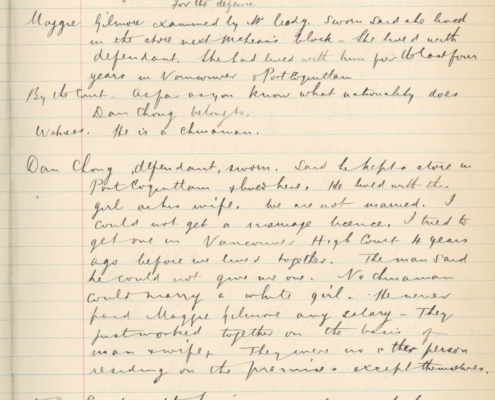 For the defence
Maggie Gilmore examined by Mr Cody. Sworn said she lived
in the store next McLean's block - She lived with
defendant. She had lived with him for the last four
years in Vancouver & Port Coquitlam
By the Court. As far as you know what nationality does
Dan Chong belong to.
Witness. He is a Chinaman.
Dan Chong, defendant, sworn. Said he kept a store in
Port Coquitlam & lived here. He lived with the
girl as his wife. We are not married. I
could not get a marriage licence. I tried to
get one in Vancouver High Court 4 years
ago before we lived together. The man said
he could not give me one. No Chinaman
could marry a white girl. He never
paid Maggie Gilmore any salary - They
just worked together on the basis of
man & wife. They were no other person
residing on the premises except themselves.